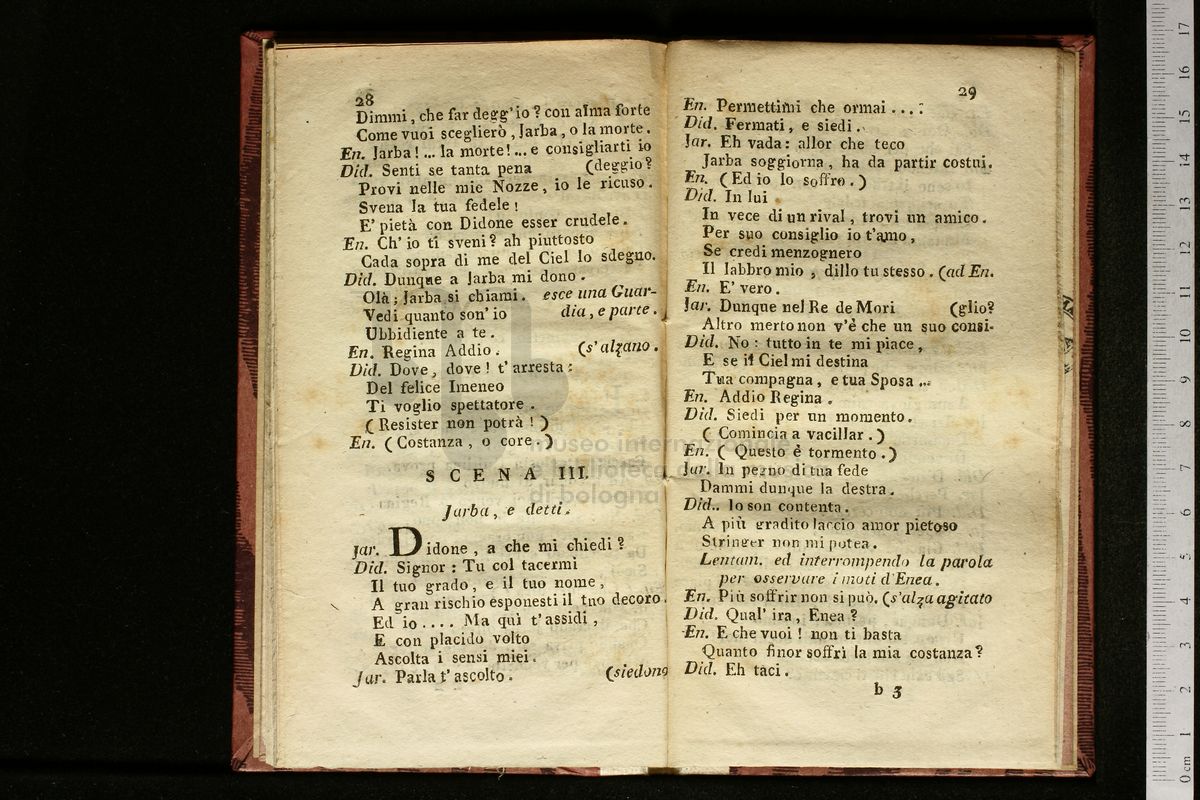 28
Dimmi, che far degg'io? con alma forte
Come vuoi sceglierò, Jarba, o la morte.
En. Jarba!... la morte!... e consigliarti io
Did. Senti se tanta pena (deggio?
Provi nelle mie Nozze, io le ricuso.
Svena la tua fedele!
E' pietà con Didone esser crudele.
En. Ch' io ti sveni? ah piuttosto
Cada sopra di me del Ciel lo sdegno.
Did. Dunque a Jarba mi dono.
Olà; Jarba si chiami. esce una Guar-
Vedi quanto son' io dia, e parte.
Ubbidiente a te.
En. Regina Addio. (s'alzano.
Did. Dove, dove! t'arresta:
Del felice Imeneo
Ti voglio spettatore.
(Resister non potrà!)
En. (Costanza, o core.)
SCENA III.
Jarba, e detti.
Jar. Didone, a che mi chiedi?
Did. Signor: Tu col tacermi
Il tuo grado, e il tuo nome,
A gran rischio esponesti il tno decoro.
Ed io.... Ma quì t'assidi,
E con placido volto
Ascolta i sensi miei.
Jar. Parla t'ascolto. (siedono
29
En. Permettimi che ormai ...:
Did. Fermati, e siedi.
Jar. Eh vada: allor che teco
Jarba soggiorna, ha da partir costui.
En. (Ed io lo soffro.)
Did. In lui
In vece di un rival, trovi un amico.
Per suo consiglio io t'amo,
Se credi menzognero
Il labbro mio, dillo tu stesso. (ad En.
En. E' vero.
Jar. Dunque nel Re de Mori (glio?
Altro merto non v'è che un suo consi-
Did. No: tutto in te mi piace,
E se il Ciel mi destina
Tua compagna, e tua Sposa ...
En. Addio Regina.
Did. Siedi per un momento.
(Comincia a vacillar.)
En. (Questo è tormento.)
Jar. In pegno di tua fede
Dammi dunque la destra.
Did.. Io son contenta.
A più gradito laccio amor pietoso
Stringer non mi potea.
Lentam. ed interrompendo la parola
per osservare i moti d'Enea.
En. Più soffrir non si può. (s'alza agitato
Did. Qual' ira, Enea?
En. E che vuoi! non ti basta
Quanto finor soffrì la mia costanza?
Did. Eh taci.
b 3
museo internazionale
e biblioteca
di bologna